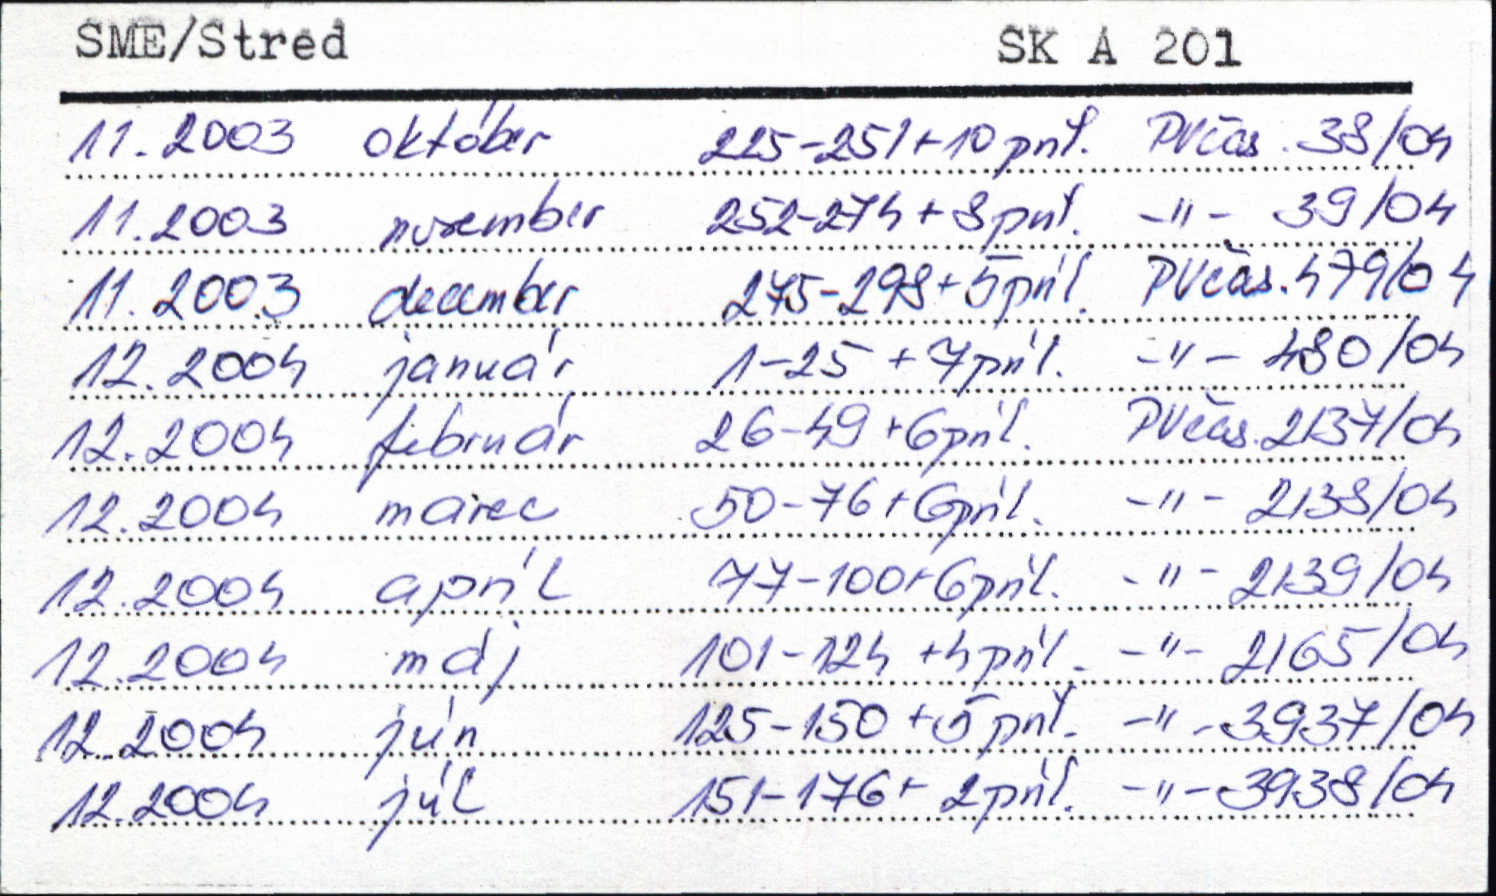 SME/Stred SK A 201
11.2003 október 225-251+10 príl. PVčas. 38/04
11.2003 november 252-274+8 príl. -"- 39/04
11.2003 december 275-298+5 príl. PVčas. 479/04
12.2004 január 1-25 +7 príl. -"- 480/04
12.2004 február 26-49 +6 príl. PVčas. 2137/04
12.2004 marec 50-76+6 príl. -"- 2138/04
12.2004 apríl 77-100+6 príl. -"- 2139/04
12.2004 máj 101-124 +4 príl. -"- 2165/04
12.2004 jún 125-150 +5 príl. -"- 3937/04
12.2004 júl 151-176+ 2 príl. -"- 3938/04